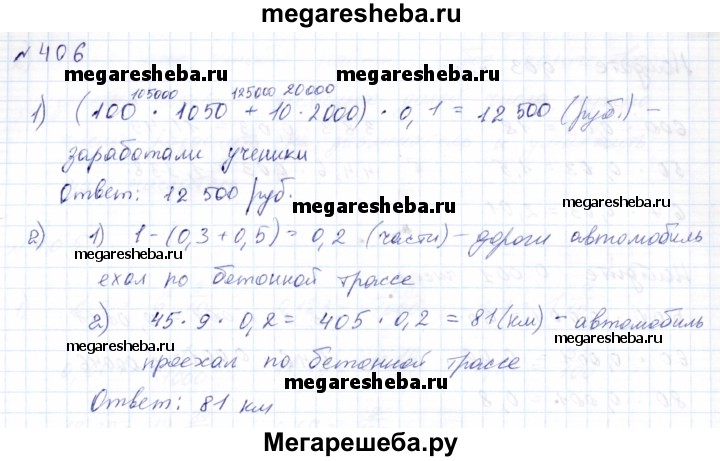 megaresheba.ru
№ 406
megaresheba.ru megaresheba.ru
105000 125000 20000
1) (100 · 1050 + 10 · 2000) · 0,1 = 12 500 (руб.) –
заработали ученики
Ответ: 12 500 руб.
megaresheba.ru
2) 1) 1 – (0,3 + 0,5) = 0,2 (части) – дороги автомобиль
megaresheba.ru
ехал по бетонной трассе
2) 45 · 9 · 0,2 = 405 · 0,2 = 81 (км) – автомобиль
megaresheba.ru megaresheba.ru
проехал по бетонной трассе
megaresheba.ru
Ответ: 81 км
Мегарешеба.ру